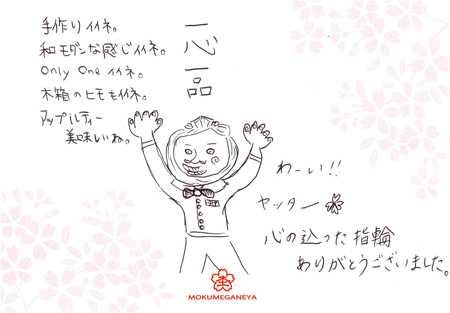 手作りイイネ。
和モダンな感じイイネ。
Only One イイネ。
木箱のヒモもイイネ。
アップルティー
美味しいね。
一心一品
わーい!!
ヤッター
心の込った指輪
ありがとうございました。
MOKUMEGANEYA